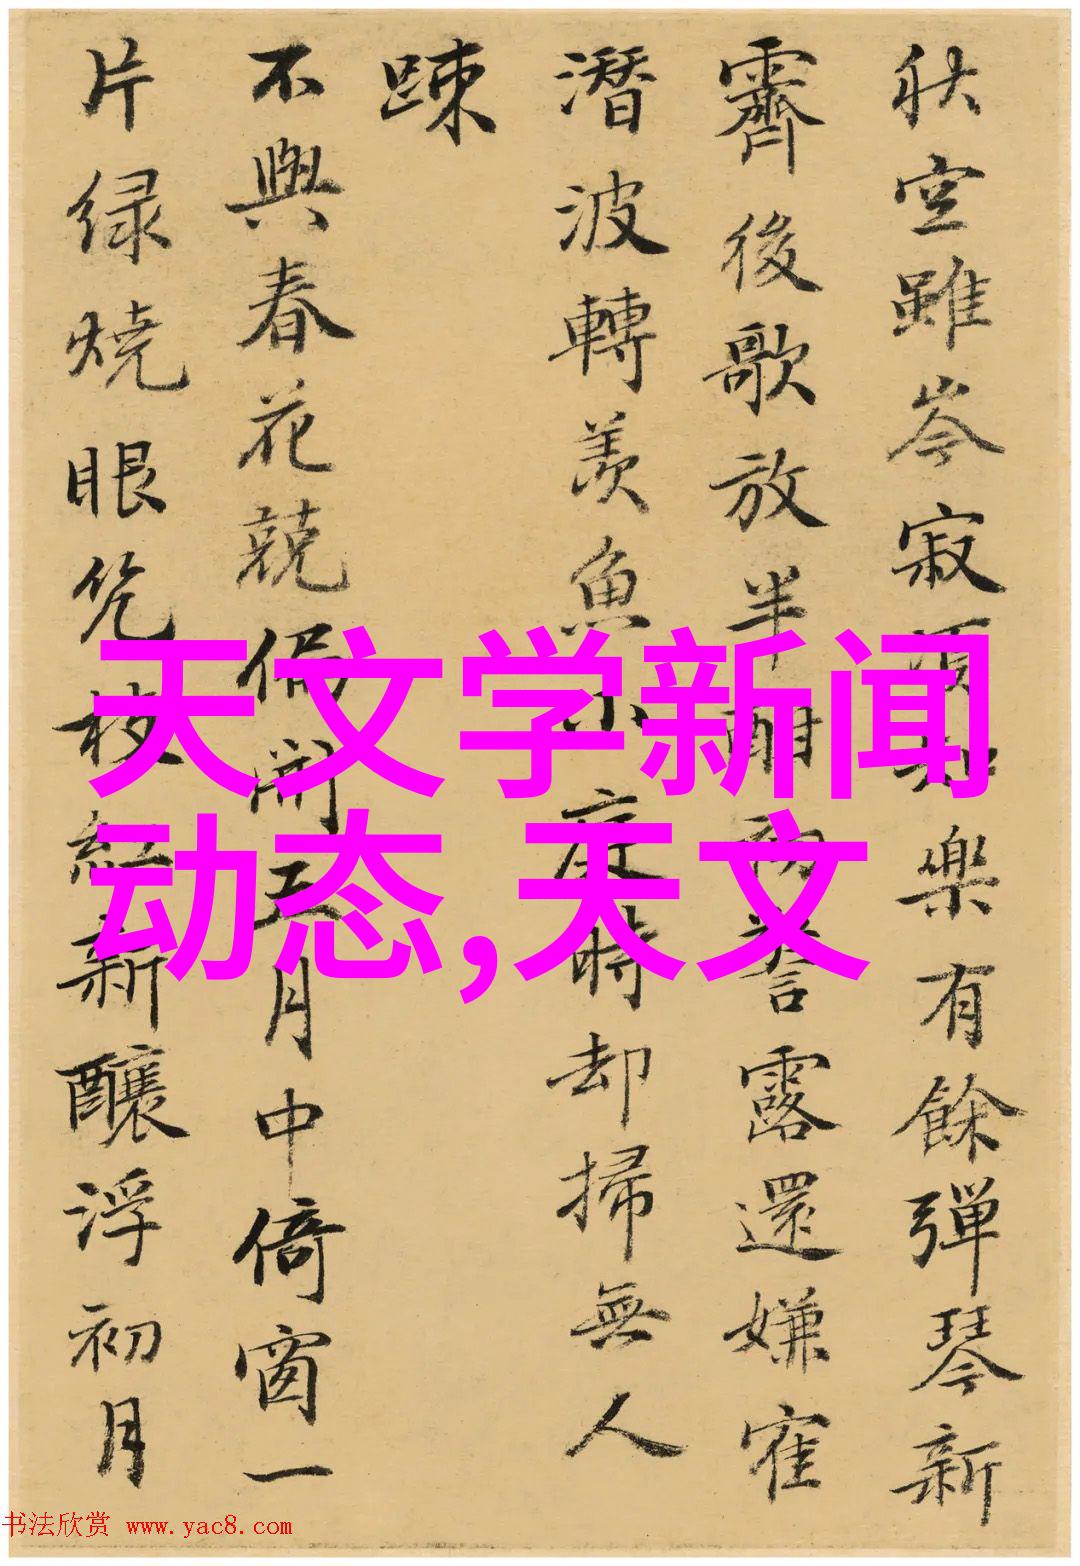 秋空雖岑寂須知樂有餘彈琴新
霽後歌放半酣露還嫌寉
潛波轉羨魚小庭時却掃無人
踈
不與春花競偏開五月中倚窗一
片绿燒眼枝紅新釀浮初月
天文学新闻
动态,天文
书法欣赏 www.yac8.com